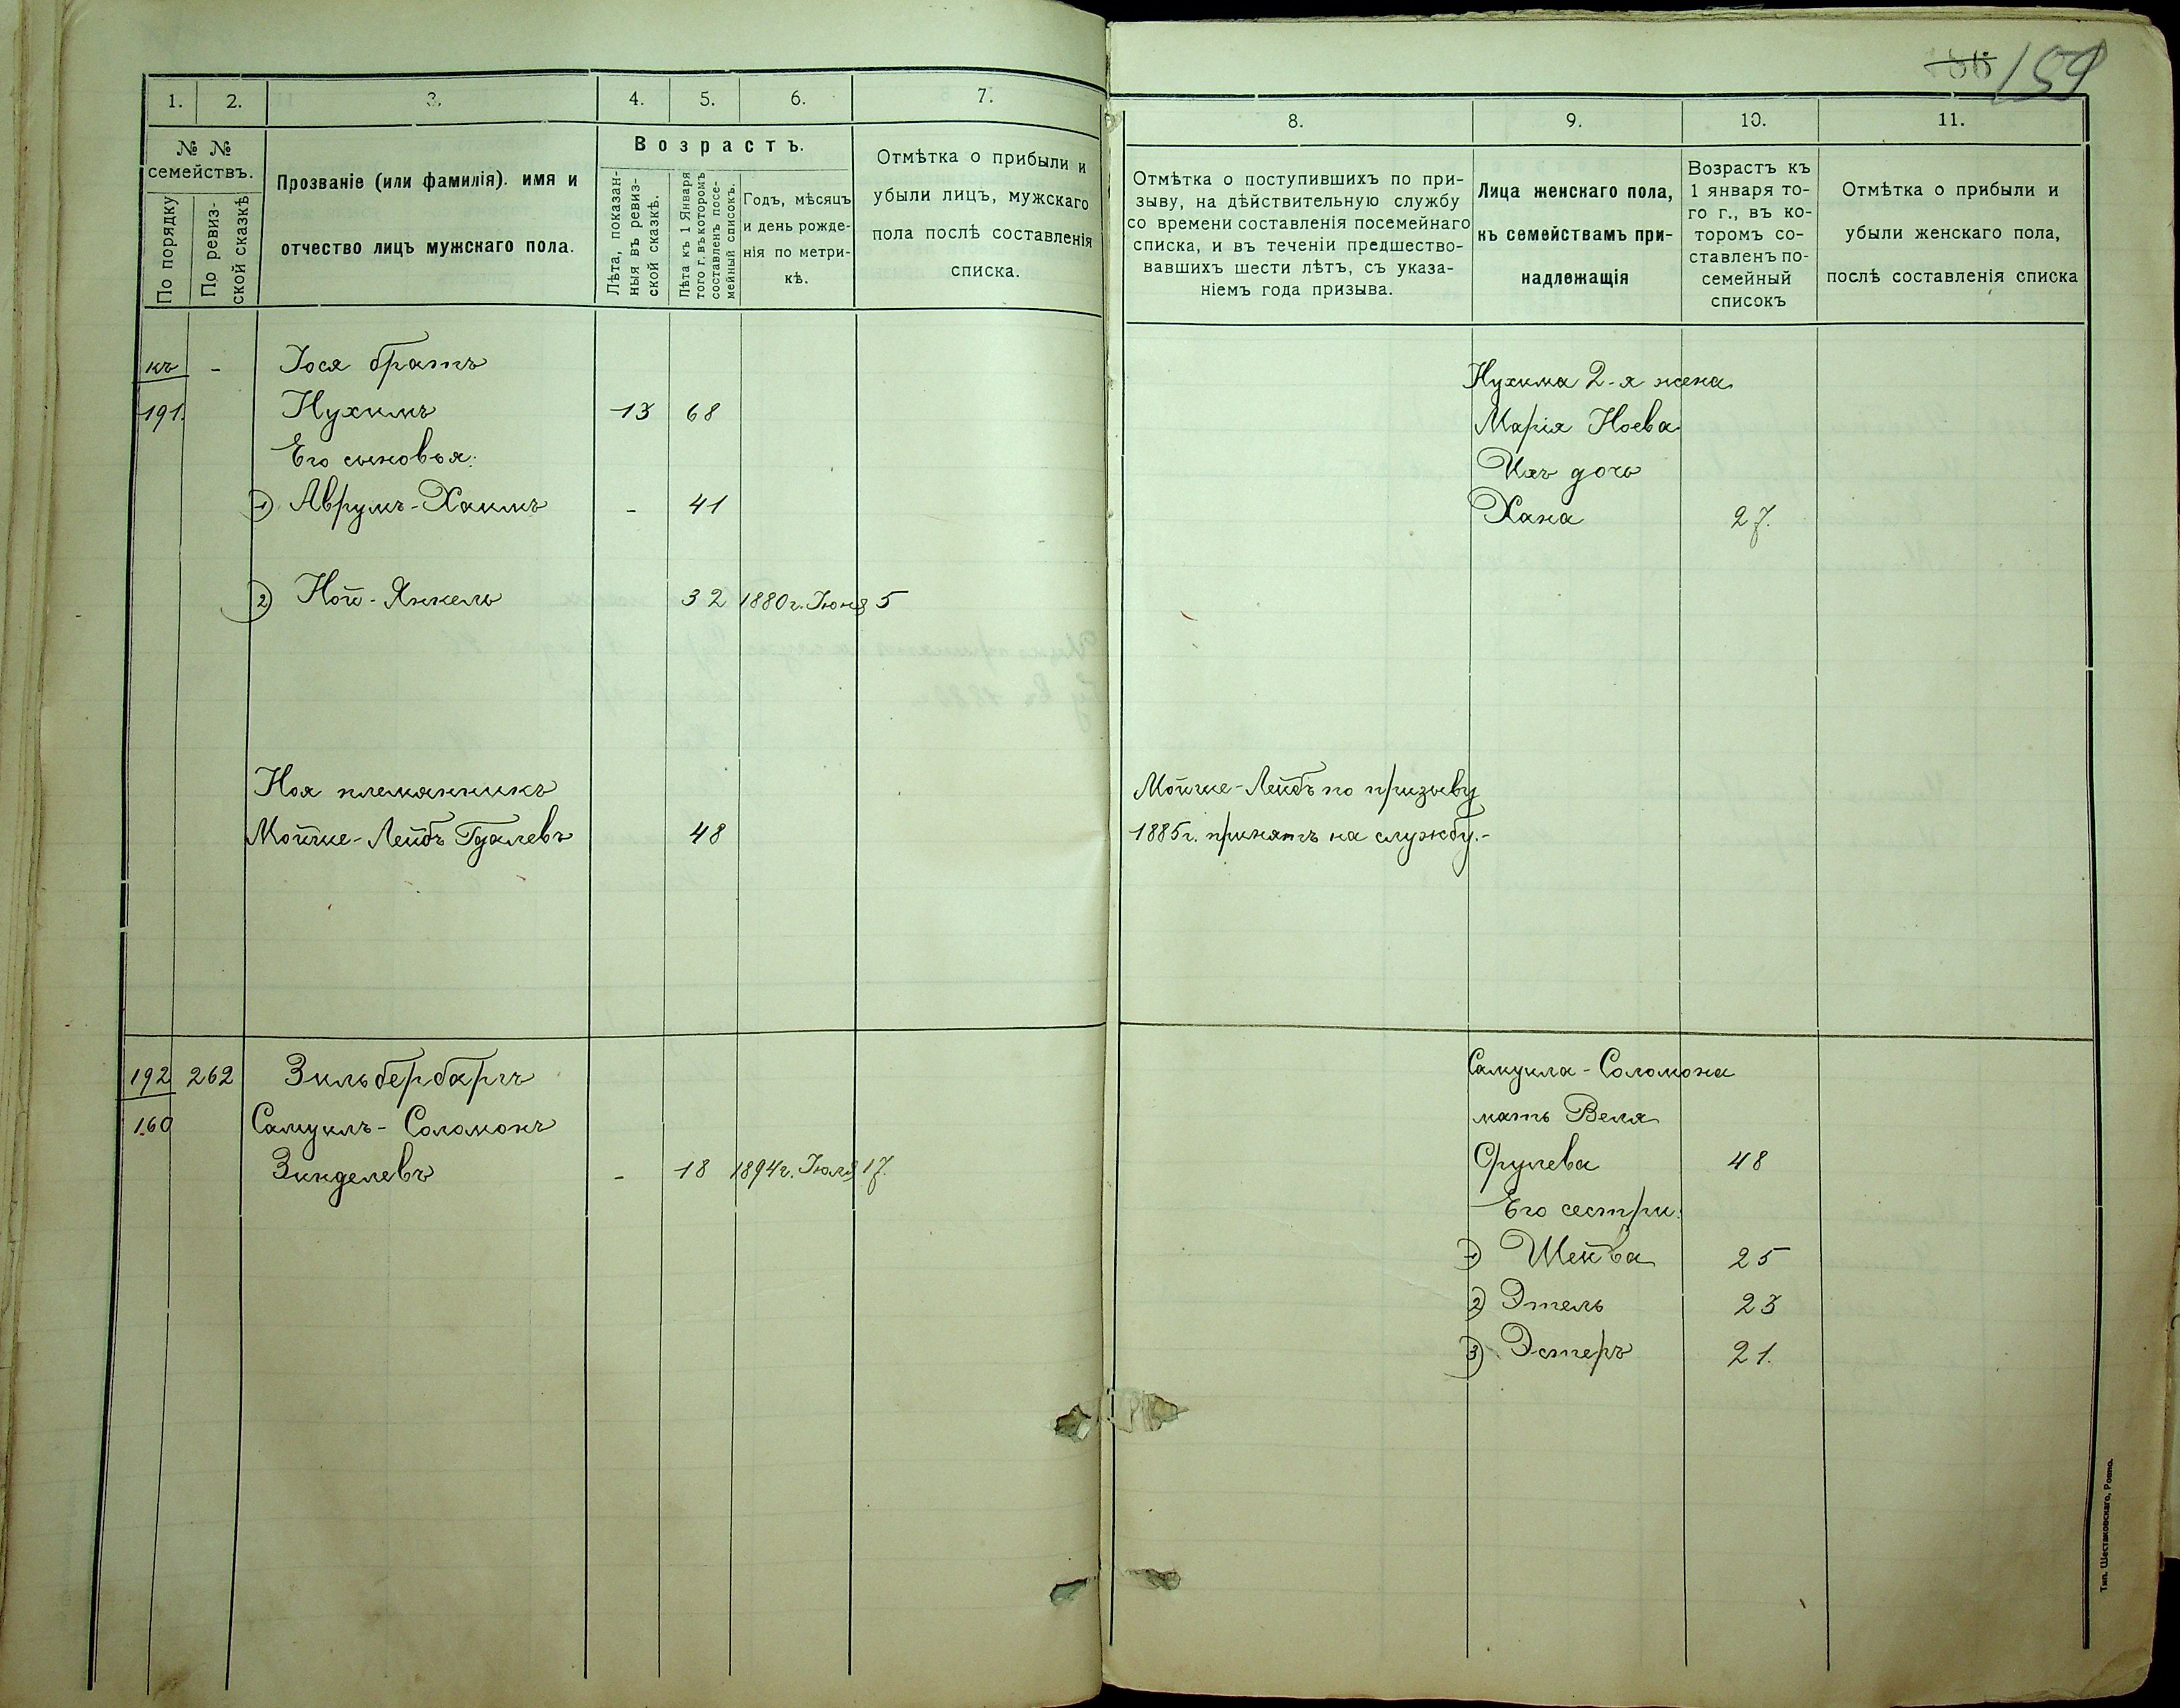 186 159
1. 2. 3. 4. 5. 6. 7.
№ №
семействъ.
По порядку
По ревиз-
ской сказкѣ
Прозваніе (или фамилія). имя и
отчество лицъ мужскаго пола.
Возрастъ.
Лѣта, показан-
ныя въ ревиз-
ской сказкѣ.
Лѣта къ 1 Января
того г. въ которомъ
составленъ посе-
мейный списокъ.
Годъ, мѣсяцъ
и день рожде-
нія по метри-
кѣ.
Отмѣтка о прибыли и
убыли лицъ, мужскаго
пола послѣ составленія
списка.
къ - Іося братъ
191. Нухимъ 13 68
Его сыновья:
1) Аврумъ-Хаимъ - 41
2) Ной-Янкель 32 1880г. Іюня 5
Ноя племянникъ
Мойше-Лейбъ Гдалевъ 48
192 262 Зильбербаргъ
160 Самуилъ-Соломонъ
Зинделевъ - 18 1894г. Іюля 17.
8. 9. 10. 11.
Отмѣтка о поступившихъ по при-
зыву, на дѣйствительную службу
со времени составленія посемейнаго
списка, и въ теченіи предшество-
вавшихъ шести лѣтъ, съ указа-
ніемъ года призыва.
Лица женскаго пола,
къ семействамъ при-
надлежащія
Возрастъ къ
1 января то-
го г., въ ко-
торомъ со-
ставленъ по-
семейный
списокъ
Отмѣтка о прибыли и
убыли женскаго пола,
послѣ составленія списка
Нухима 2-я жена
Марія Ноева
Ихъ дочь
Хана 27.
Мойше-Лейбъ по призыву
1885г. принятъ на службу.-
Самуила-Соломона
мать Веля
Срулева 48
Его сестры:
1) Шейва 25
2) Этель 23
3) Эстеръ 21.
Тип. Шестаковскаго, Ровно.